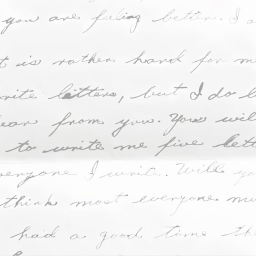 you are feeling better. I a
t is rather hard for me
write letters, but I do l
ear from you. You will
to write me five lett
everyone I write. Will yo
think most everyone mu
had a good time the